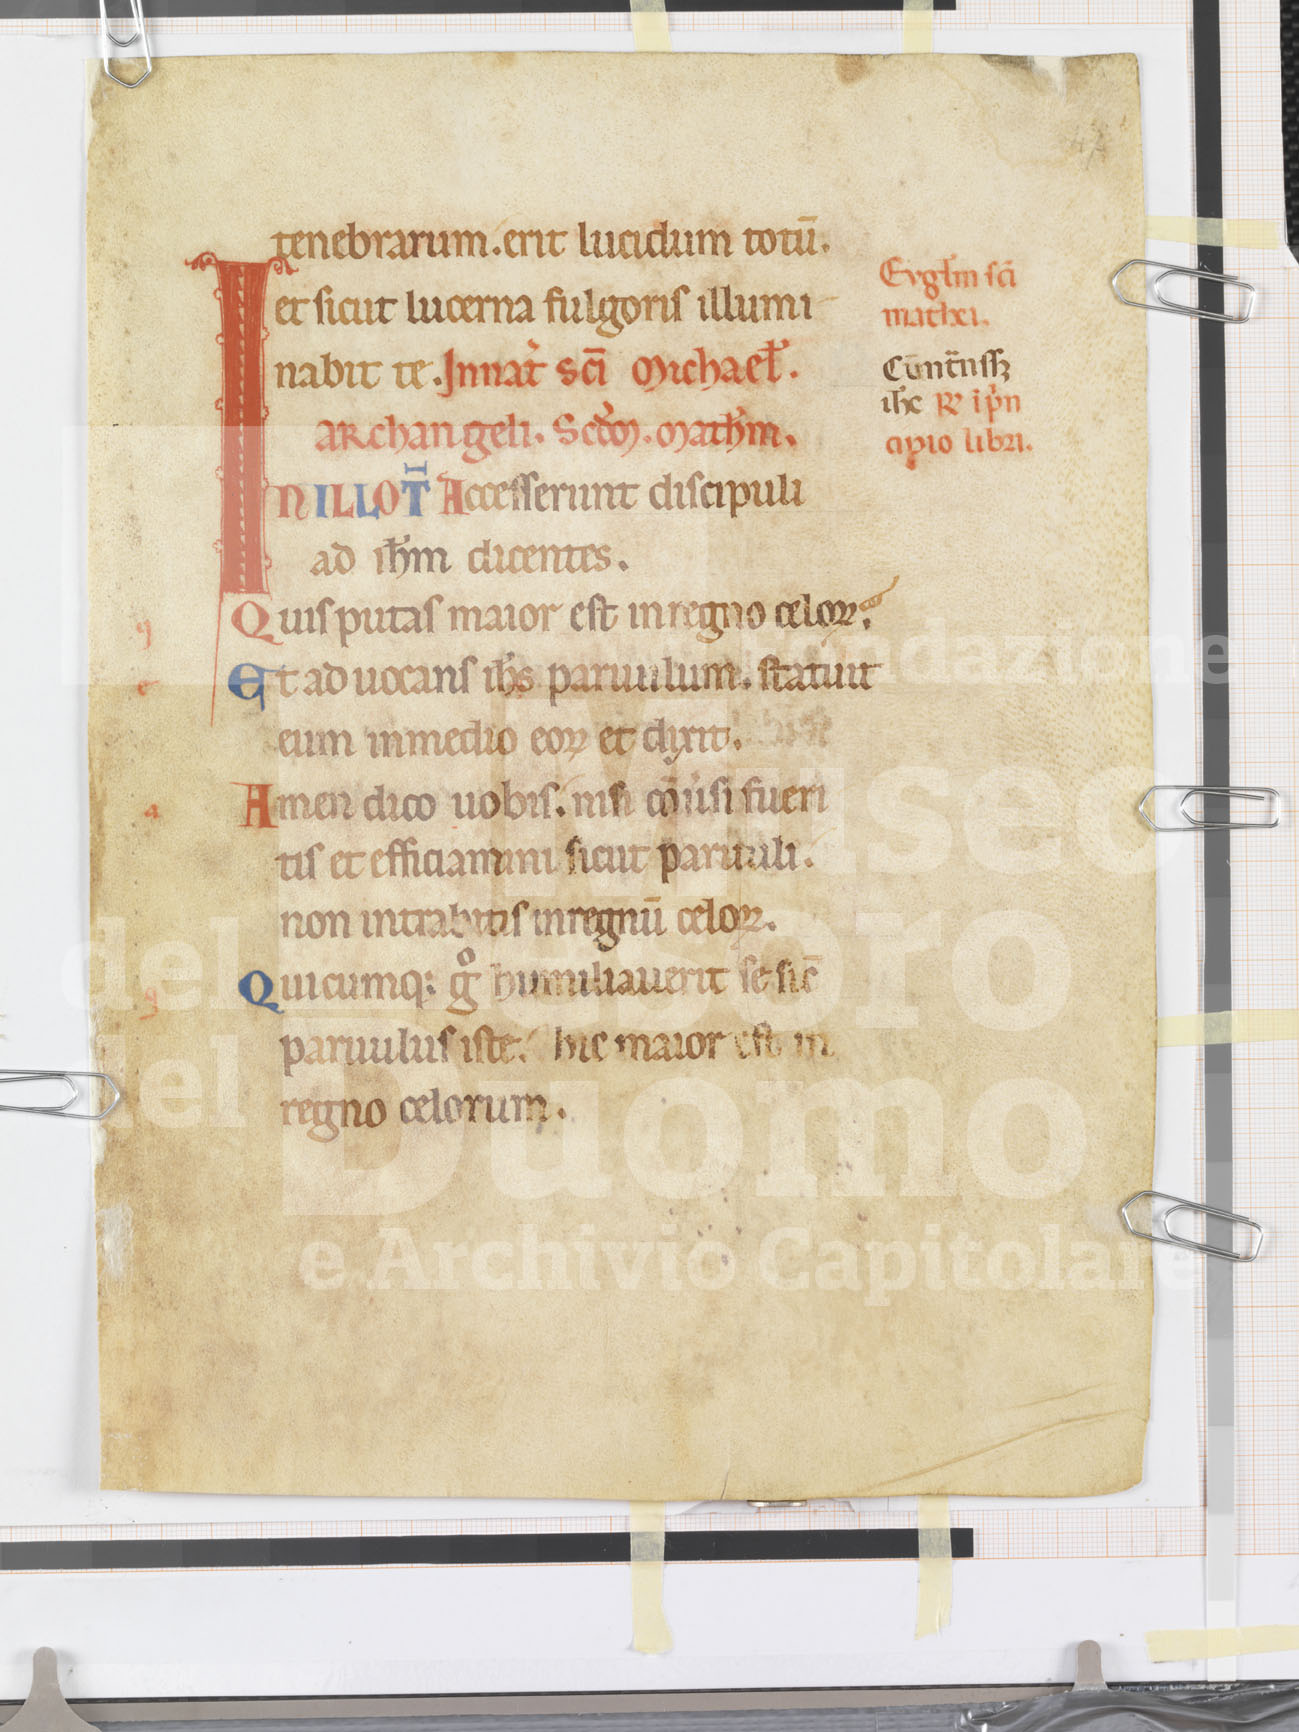 tenebrarum. erit lucidum totū.
et sicut lucerna fulgoris illumi
nabit te. Jnnat̉ sc̄i Michaeƚ.
archangeli. Scd̉m. Math̉m.
INILLOT̄ Accesserunt discipuli
ad ih̄m dicentes.
Quis putas maior est in regno celoꝝ.
Et aduocans ih̄s paruulum. statuit
eum in medio eoꝝ et dixit.
Amen dico uobis. nisi cōu̾si fueri
tis et efficiamini sicut paruuli.
non intrabitis in regnū celoꝝ.
Quicumq: gͦ humiliauerit se sic̄
paruulus iste. hic maior est in
regno celorum.
Evgl̄m sc̄i
mathei.
ih̄c R̉ ip̉n
cipio libri.
47
q
e
a
q
Fondazione
Museo
del Tesoro
del Duomo
e Archivio Capitolare